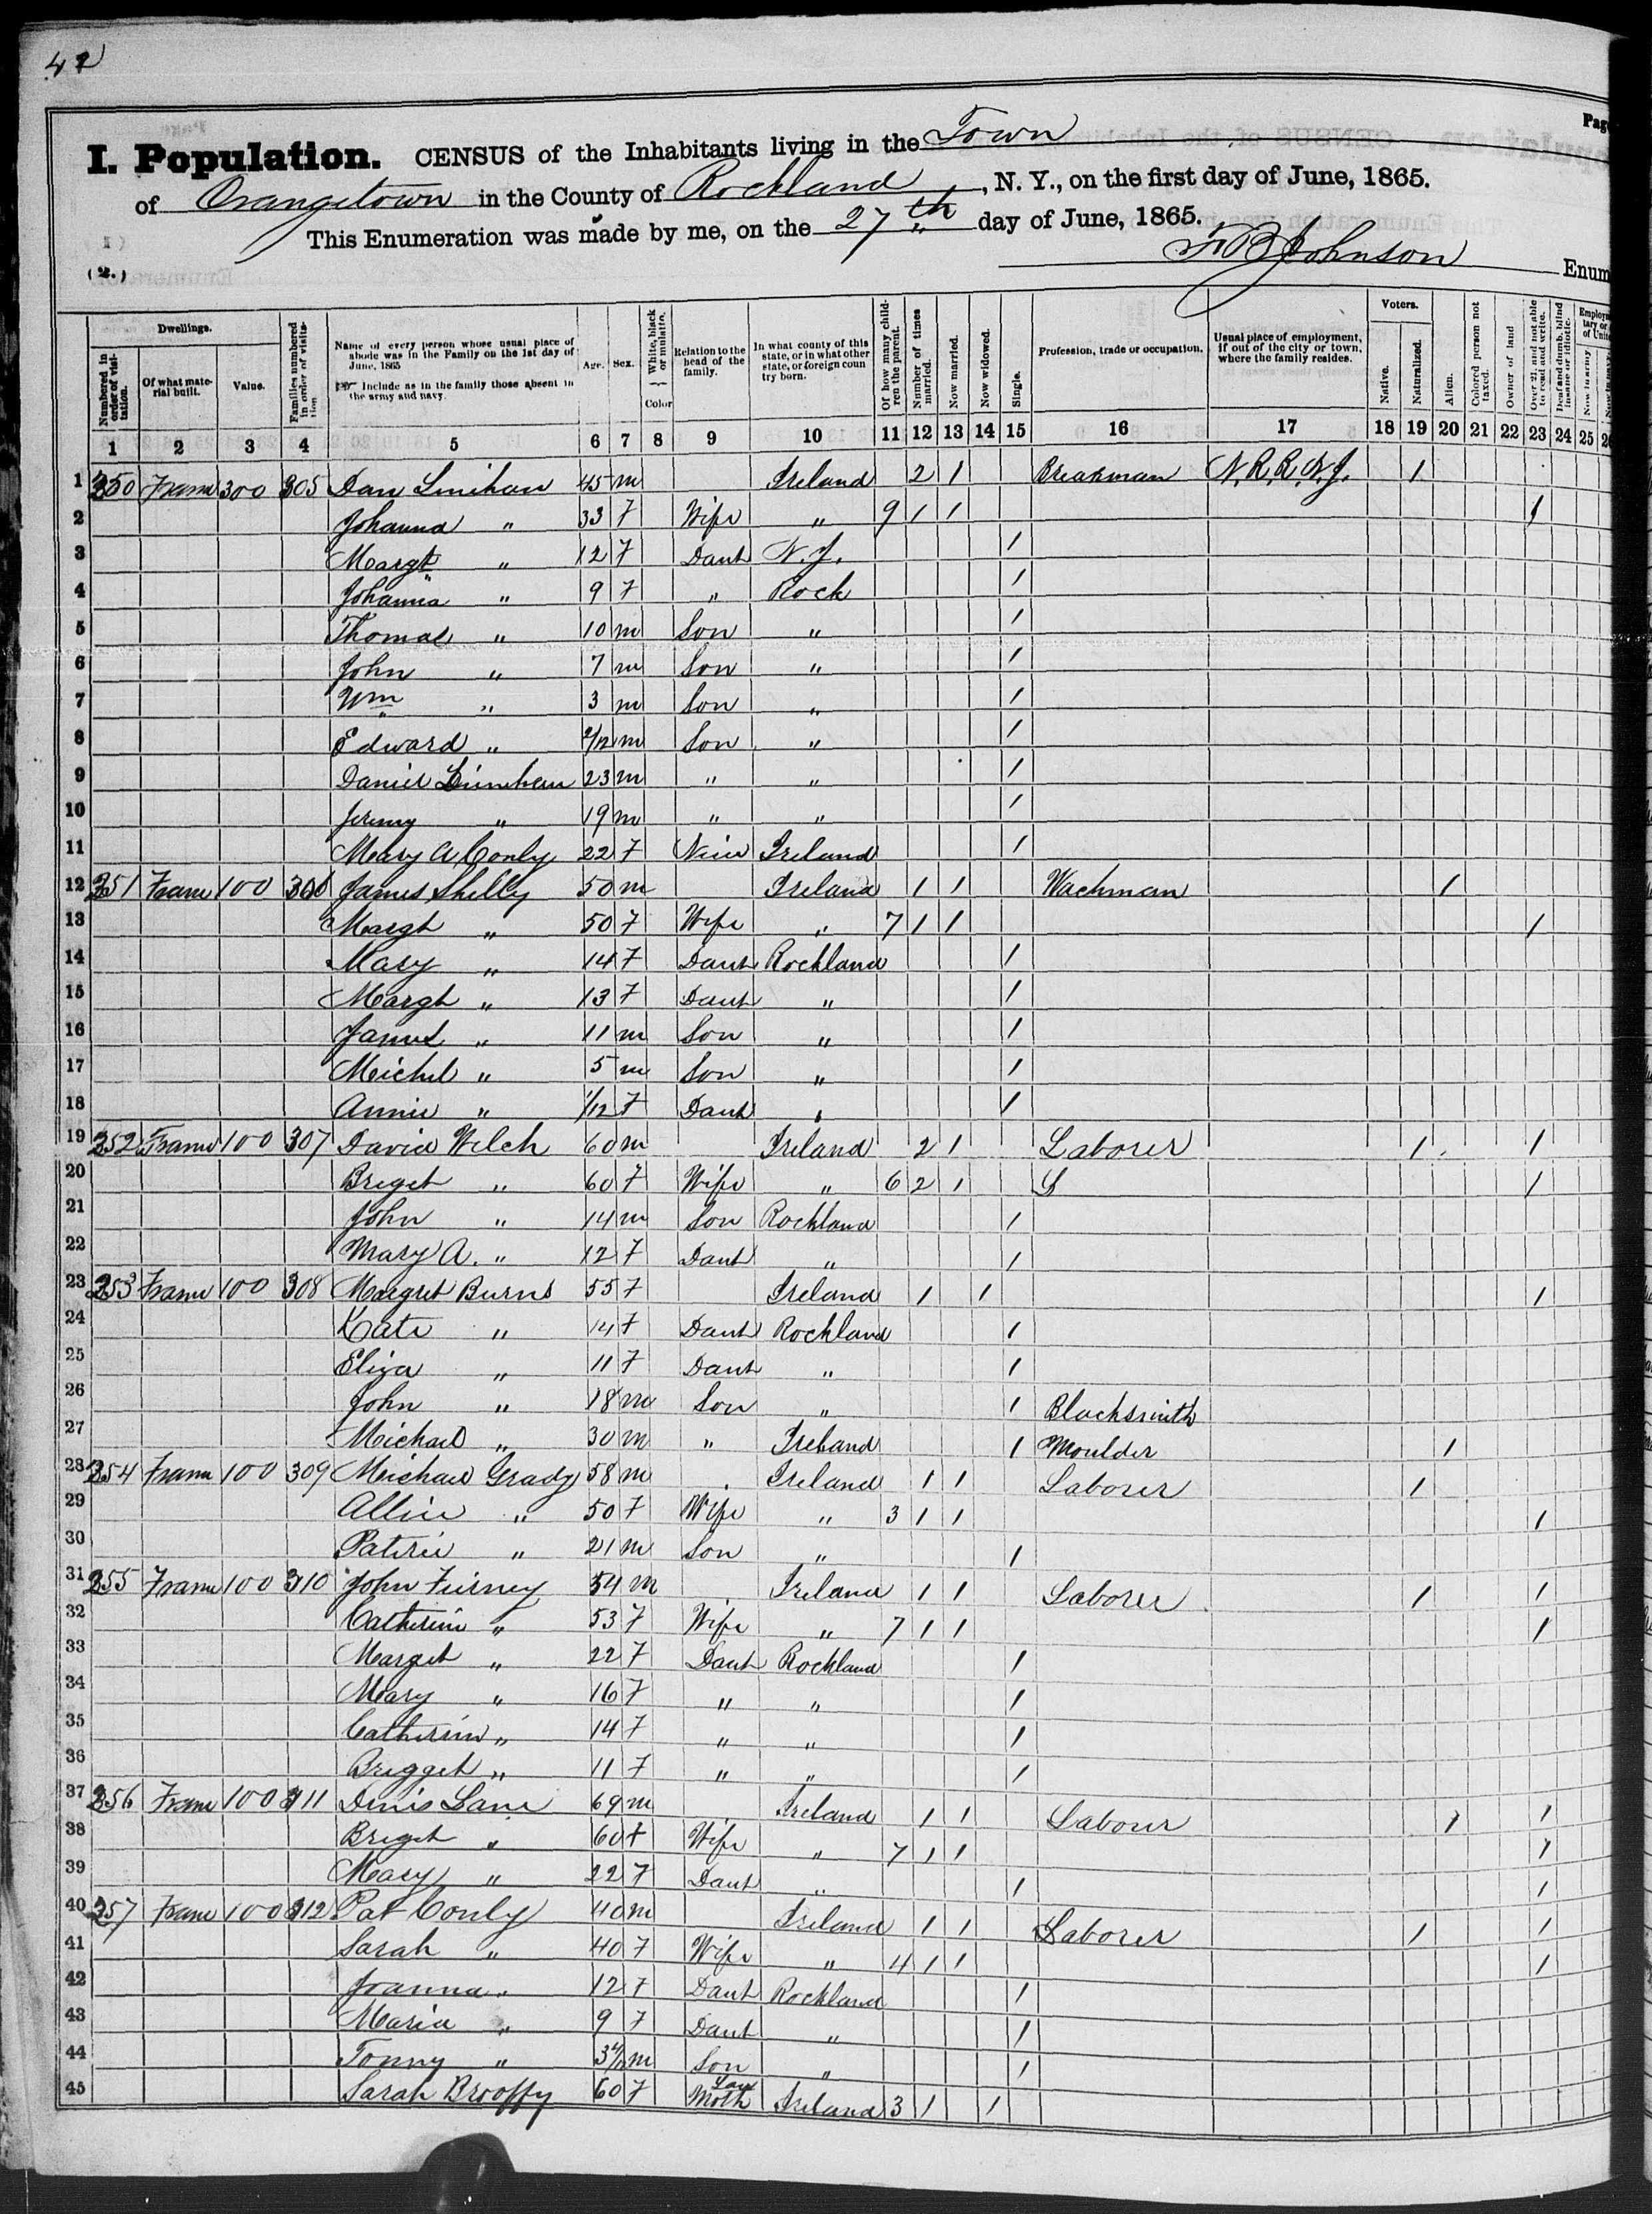 42
Page
I. Population. CENSUS of the Inhabitants living in the Town
of Orangetown in the County of Rockland, N. Y., on the first day of June, 1865.
This Enumeration was made by me, on the 27th day of June, 1865.
Johnson Enum
(2.)
Numbered in order of visitation. Dwellings. Of what material built. Value. Families numbered in order of visitation Name of every person whose usual place of abode was in the Family on the 1st day of June, 1865 Include as in the family those absent in the army and navy. Age. Sex. White, black or mulatto. Color Relation to the head of the family. In what county of this state, or in what other state, or foreign country born. Of how many children the parent. Number of times married. Now married. Now widowed. Single. Profession, trade or occupation. Usual place of employment, if out of the city or town, where the family resides. Voters. Native. Naturalized. Alien. Colored person not taxed. Owner of land Over 21, and not able to read and write. Deaf and dumb, blind insane or idiotic.
1 2 3 4 5 6 7 8 9 10 11 12 13 14 15 16 17 18 19 20 21 22 23 24 25
1 350 Frame 300 305 Dan Linihan 45 m Ireland 2 1 Breakman N.R.R.N.J. 1
2 Johanna " 33 F Wife " 9 1 1 1
3 Margt " 12 F Daut N.J. 1
4 Johanna " 9 F " Rock 1
5 Thomas " 10 m Son " 1
6 John " 7 m Son " 1
7 Wm " 3 m Son " 1
8 Edward " 2/12 m Son " 1
9 Daniel Linehan 23 m " " 1
10 Jeremy " 19 m " " 1
11 Mary A Conly 22 F Niece Ireland 1
12 351 Frame 100 306 James Shelly 50 m Ireland 1 1 Wachman 1
13 Margt " 50 F Wife " 7 1 1 1
14 Mary " 14 F Daut Rockland 1
15 Margt " 13 F Daut " 1
16 James " 11 m Son " 1
17 Michel " 5 m Son " 1
18 Annie " 1/12 F Daut " 1
19 352 Frame 100 307 David Welch 60 m Ireland 2 1 Laborer 1 1
20 Briget " 60 F Wife " 6 2 1 1
21 John " 14 m Son Rockland 1
22 Mary A. " 12 F Daut " 1
23 353 Frame 100 308 Margret Burns 55 F Ireland 1 1 1
24 Kate " 14 F Daut Rockland 1
25 Eliza " 11 F Daut " 1
26 John " 18 m Son " 1 Blacksmith
27 Michael " 30 m " Ireland 1 Moulder 1
28 354 Frame 100 309 Michael Grady 58 m Ireland 1 1 Laborer 1
29 Allice " 50 F Wife " 3 1 1 1
30 Patric " 21 m Son " 1
31 355 Frame 100 310 John Furney 54 m Ireland 1 1 Laborer 1 1
32 Catherin " 53 F Wife " 7 1 1 1
33 Marget " 22 F Daut Rockland 1
34 Mary " 16 F " " 1
35 Catherin " 14 F " " 1
36 Brigget " 11 F " " 1
37 356 Frame 100 311 Denis Lane 69 m Ireland 1 1 Laborer 1 1
38 Briget " 60 F Wife " 7 1 1 1
39 Mary " 22 F Daut " 1 1
40 357 Frame 100 312 Pat Conly 40 m Ireland 1 1 Laborer 1 1
41 Sarah " 40 F Wife " 4 1 1 1
42 Joanna " 12 F Daut Rockland 1
43 Maria " 9 F Daut " 1
44 Tonny " m Son " 1
45 Sarah Brooffy 60 F Law Moth Ireland 3 1 1